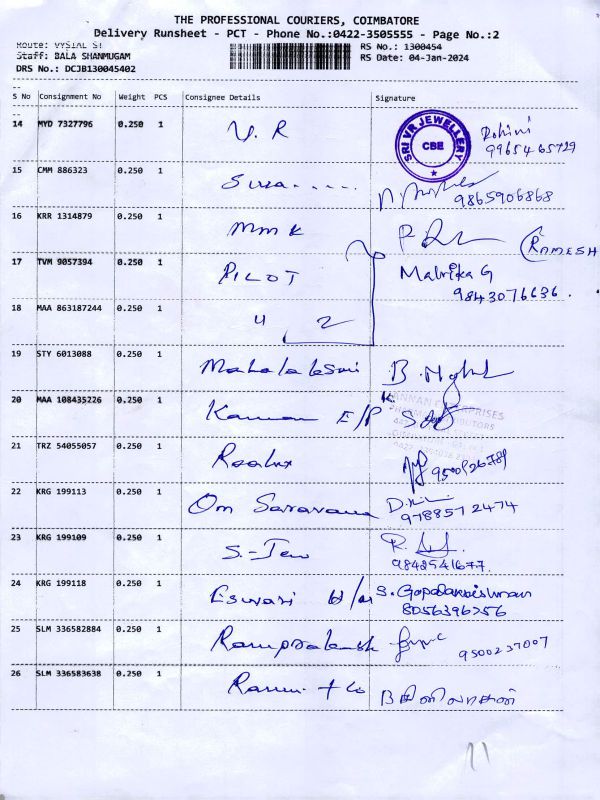 THE PROFESSIONAL COURIERS, COIMBATORE
Delivery Runsheet - PCT - Phone No.:0422-3505555 - Page No.:2
Route: VYSIAL ST RS No.: 1300454
Staff: BALA SHANMUGAM RS Date: 04-Jan-2024
DRS No.: DCJB130045402
S No Consignment No Weight PCS Consignee Details Signature
14 MYD 7327796 0.250 1 V. R SRI VR JEWELLERY CBE Rohini
9965465729
15 CMM 886323 0.250 1
9865906868
16 KRR 1314879 0.250 1 MMK (RAMESH
17 TVM 9057394 0.250 1 PILOT Malvika G
9843076636.
18 MAA 863187244 0.250 1 4 2
19 STY 6013088 0.250 1 Mahalaksmi
20 MAA 108435226 0.250 1 Kannan E/P
21 TRZ 54055057 0.250 1
22 KRG 199113 0.250 1 Om Saravana
9788572474
23 KRG 199109 0.250 1 S.-Jew
9842541677.
24 KRG 199118 0.250 1 Eswari S. Gopalakrishnan
8056396256
25 SLM 336582884 0.250 1 Ramprakash
9500237007
26 SLM 336583638 0.250 1 + Co
11